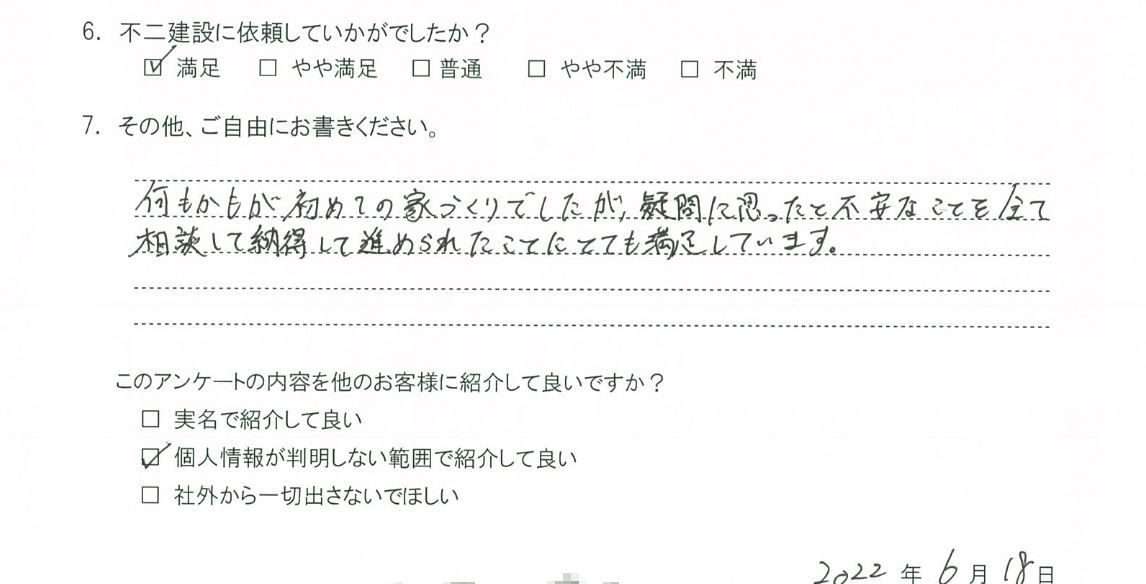 6. 不二建設に依頼していかがでしたか？
☑ 満足 □ やや満足 □ 普通 □ やや不満 □ 不満
7. その他、ご自由にお書きください。
何もかもが初めての家づくりでしたが、疑問に思ったと不安なことを全て
相談して納得して進められたことにとても満足しています。
このアンケートの内容を他のお客様に紹介して良いですか？
□ 実名で紹介して良い
☑ 個人情報が判明しない範囲で紹介して良い
□ 社外から一切出さないでほしい
2022 年 6 月 18 日